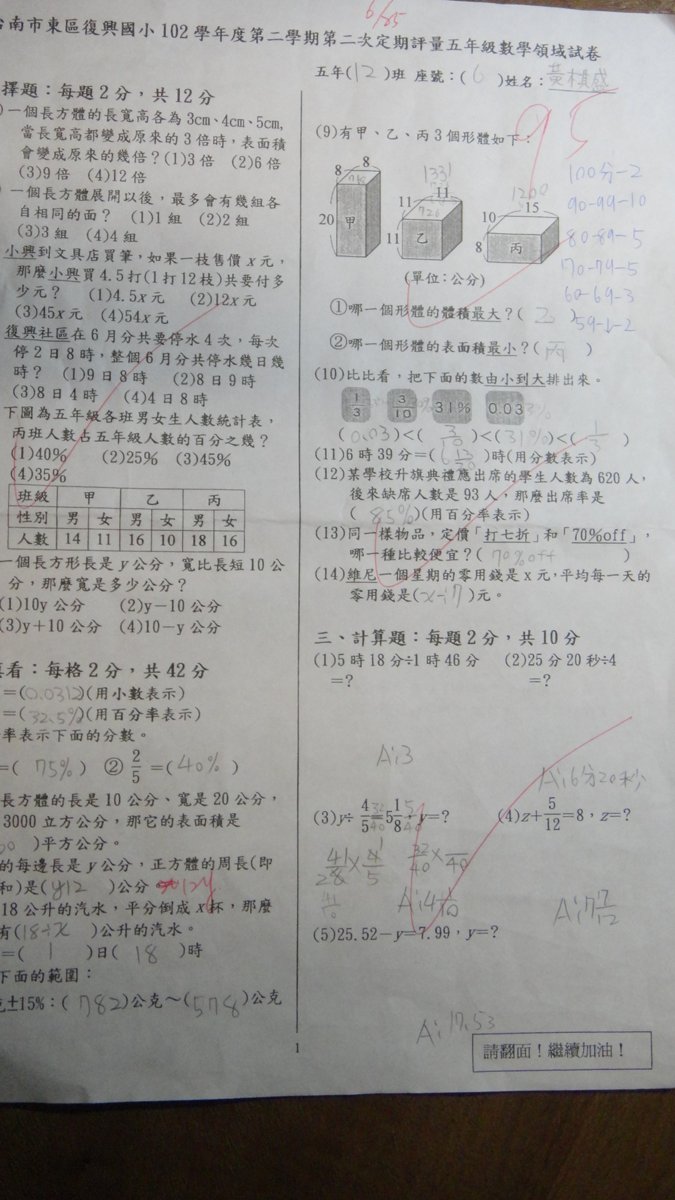 6/25
台南市東區復興國小102學年度第二學期第二次定期評量五年級數學領域試卷
五年(12)班 座號:(6)姓名:黃棋盛
95
擇題:每題2分,共12分
一個長方體的長寬高各為3cm、4cm、5cm,
當長寬高都變成原來的3倍時,表面積
會變成原來的幾倍?(1)3倍 (2)6倍
(3)9倍 (4)12倍
一個長方體展開以後,最多會有幾組各
自相同的面? (1)1組 (2)2組
(3)3組 (4)4組
小興到文具店買筆,如果一枝售價x元,
那麼小興買4.5打(1打12枝)共要付多
少元? (1)4.5x元 (2)12x元
(3)45x元 (4)54x元
復興社區在6月分共要停水4次,每次
停2日8時,整個6月分共停水幾日幾
時? (1)9日8時 (2)8日9時
(3)8日4時 (4)4日8時
下圖為五年級各班男女生人數統計表,
丙班人數占五年級人數的百分之幾?
(1)40% (2)25% (3)45%
(4)35%
班級 甲 乙 丙
性別 男 女 男 女 男 女
人數 14 11 16 10 18 16
一個長方形長是y公分,寬比長短10公
分,那麼寬是多少公分?
(1)10y公分 (2)y-10公分
(3)y+10公分 (4)10-y公分
看:每格2分,共42分
=(0.0312)(用小數表示)
=(32.5%)(用百分率表示)
率表示下面的分數。
=(75%) ② 2/5 =(40%)
長方體的長是10公分、寬是20公分,
3000立方公分,那它的表面積是
)平方公分。
的每邊長是y公分,正方體的周長(即
和)是(y12)公分 12y
18公升的汽水,平分倒成x杯,那麼
有(18÷x)公升的汽水。
=(1)日(18)時
下面的範圍:
克±15%:(782)公克~(578)公克
(9)有甲、乙、丙3個形體如下:
100分-2
90-99-10
80-89-5
70-79-5
60-69-3
8 8 20 甲
1331
11 11 11 720 乙
1200
10 15 8 丙
(單位:公分)
①哪一個形體的體積最大?(乙)
②哪一個形體的表面積最小?(丙)
(10)比比看,把下面的數由小到大排出來。
1/3 3/10 31% 0.03
(0.03)<(3/10)<(31%)<(1/3)
(11)6時39分=( )時(用分數表示)
(12)某學校升旗典禮應出席的學生人數為620人,
後來缺席人數是93人,那麼出席率是
(85%)(用百分率表示)
(13)同一樣物品,定價「打七折」和「70%off」,
哪一種比較便宜?(70%off)
(14)維尼一個星期的零用錢是x元,平均每一天的
零用錢是(x÷7)元。
三、計算題:每題2分,共10分
(1)5時18分÷1時46分 (2)25分20秒÷4
=? =?
A:3
A:6分20秒
(3)y÷4/5=5 1/8,y=? (4)z+5/12=8,z=?
A:4 1/10
A:7 7/12
(5)25.52-y=7.99,y=?
A:17.53
請翻面!繼續加油!
1